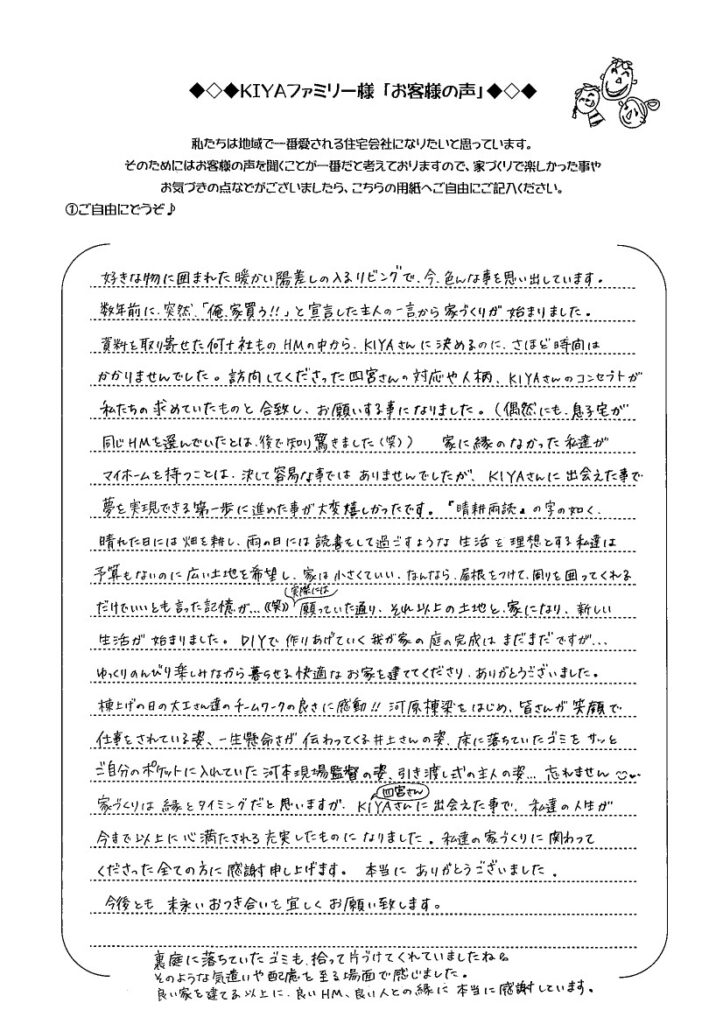 ◆◇◆KIYAファミリー様「お客様の声」◆◇◆
私たちは地域で一番愛される住宅会社になりたいと思っています。
そのためにはお客様の声を聞くことが一番だと考えておりますので、家づくりで楽しかった事や
お気づきの点などがございましたら、こちらの用紙へご自由にご記入ください。
①ご自由にどうぞ♪
好きな物に囲まれた暖かい陽差しの入るリビングで、今、色んな事を思い出しています。
数年前に、突然、「俺、家買う!!」と宣言した主人の一言から家づくりが始まりました。
資料を取り寄せた何十社ものHMの中から、KIYAさんに決めるのに、さほど時間は
かかりませんでした。訪問してくださった四宮さんの対応や人柄、KIYAさんのコンセプトが
私たちの求めていたものと合致し、お願いする事になりました。(偶然にも、息子宅が
同じHMを選んでいたとは、後で知り驚きました(笑)) 家に縁のなかった私達が
マイホームを持つことは、決して容易な事ではありませんでしたが、KIYAさんに出会えた事で
夢を実現できる第一歩に進めた事が大変嬉しかったです。『晴耕雨読』の字の如く、
晴れた日には畑を耕し、雨の日には読書をして過ごすような生活を理想とする私達は
予算もないのに広い土地を希望し、家は小さくていい、なんなら、屋根をつけて、周りを囲ってくれる
だけでいいとも言った記憶が…(笑) 実際には願っていた通り、それ以上の土地と、家になり、新しい
生活が始まりました。DIYで作りあげていく我が家の庭の完成はまだまだですが…
ゆっくりのんびり楽しみながら暮らせる快適なお家を建ててくださり、ありがとうございました。
棟上げの日の大工さん達のチームワークの良さに感動!!河原棟梁をはじめ、皆さんが笑顔で
仕事をされている姿、一生懸命さが伝わってくる井上さんの姿、床に落ちていたゴミをサッと
ご自分のポケットに入れていた河本現場監督の姿、引き渡し式の主人の姿…忘れません
家づくりは縁とタイミングだと思いますが、KIYAさんに四宮さんに出会えた事で、私達の人生が
今まで以上に心満たされる充実したものになりました。私達の家づくりに関わって
くださった全ての方に感謝申し上げます。本当にありがとうございました。
今後とも末永いおつき合いを宜しくお願い致します。
裏庭に落ちていたゴミも、拾って片づけてくれていましたね
そのような気遣いや配慮を至る場面で感じました。
良い家を建てる以上に、良いHM、良い人との縁に本当に感謝しています。